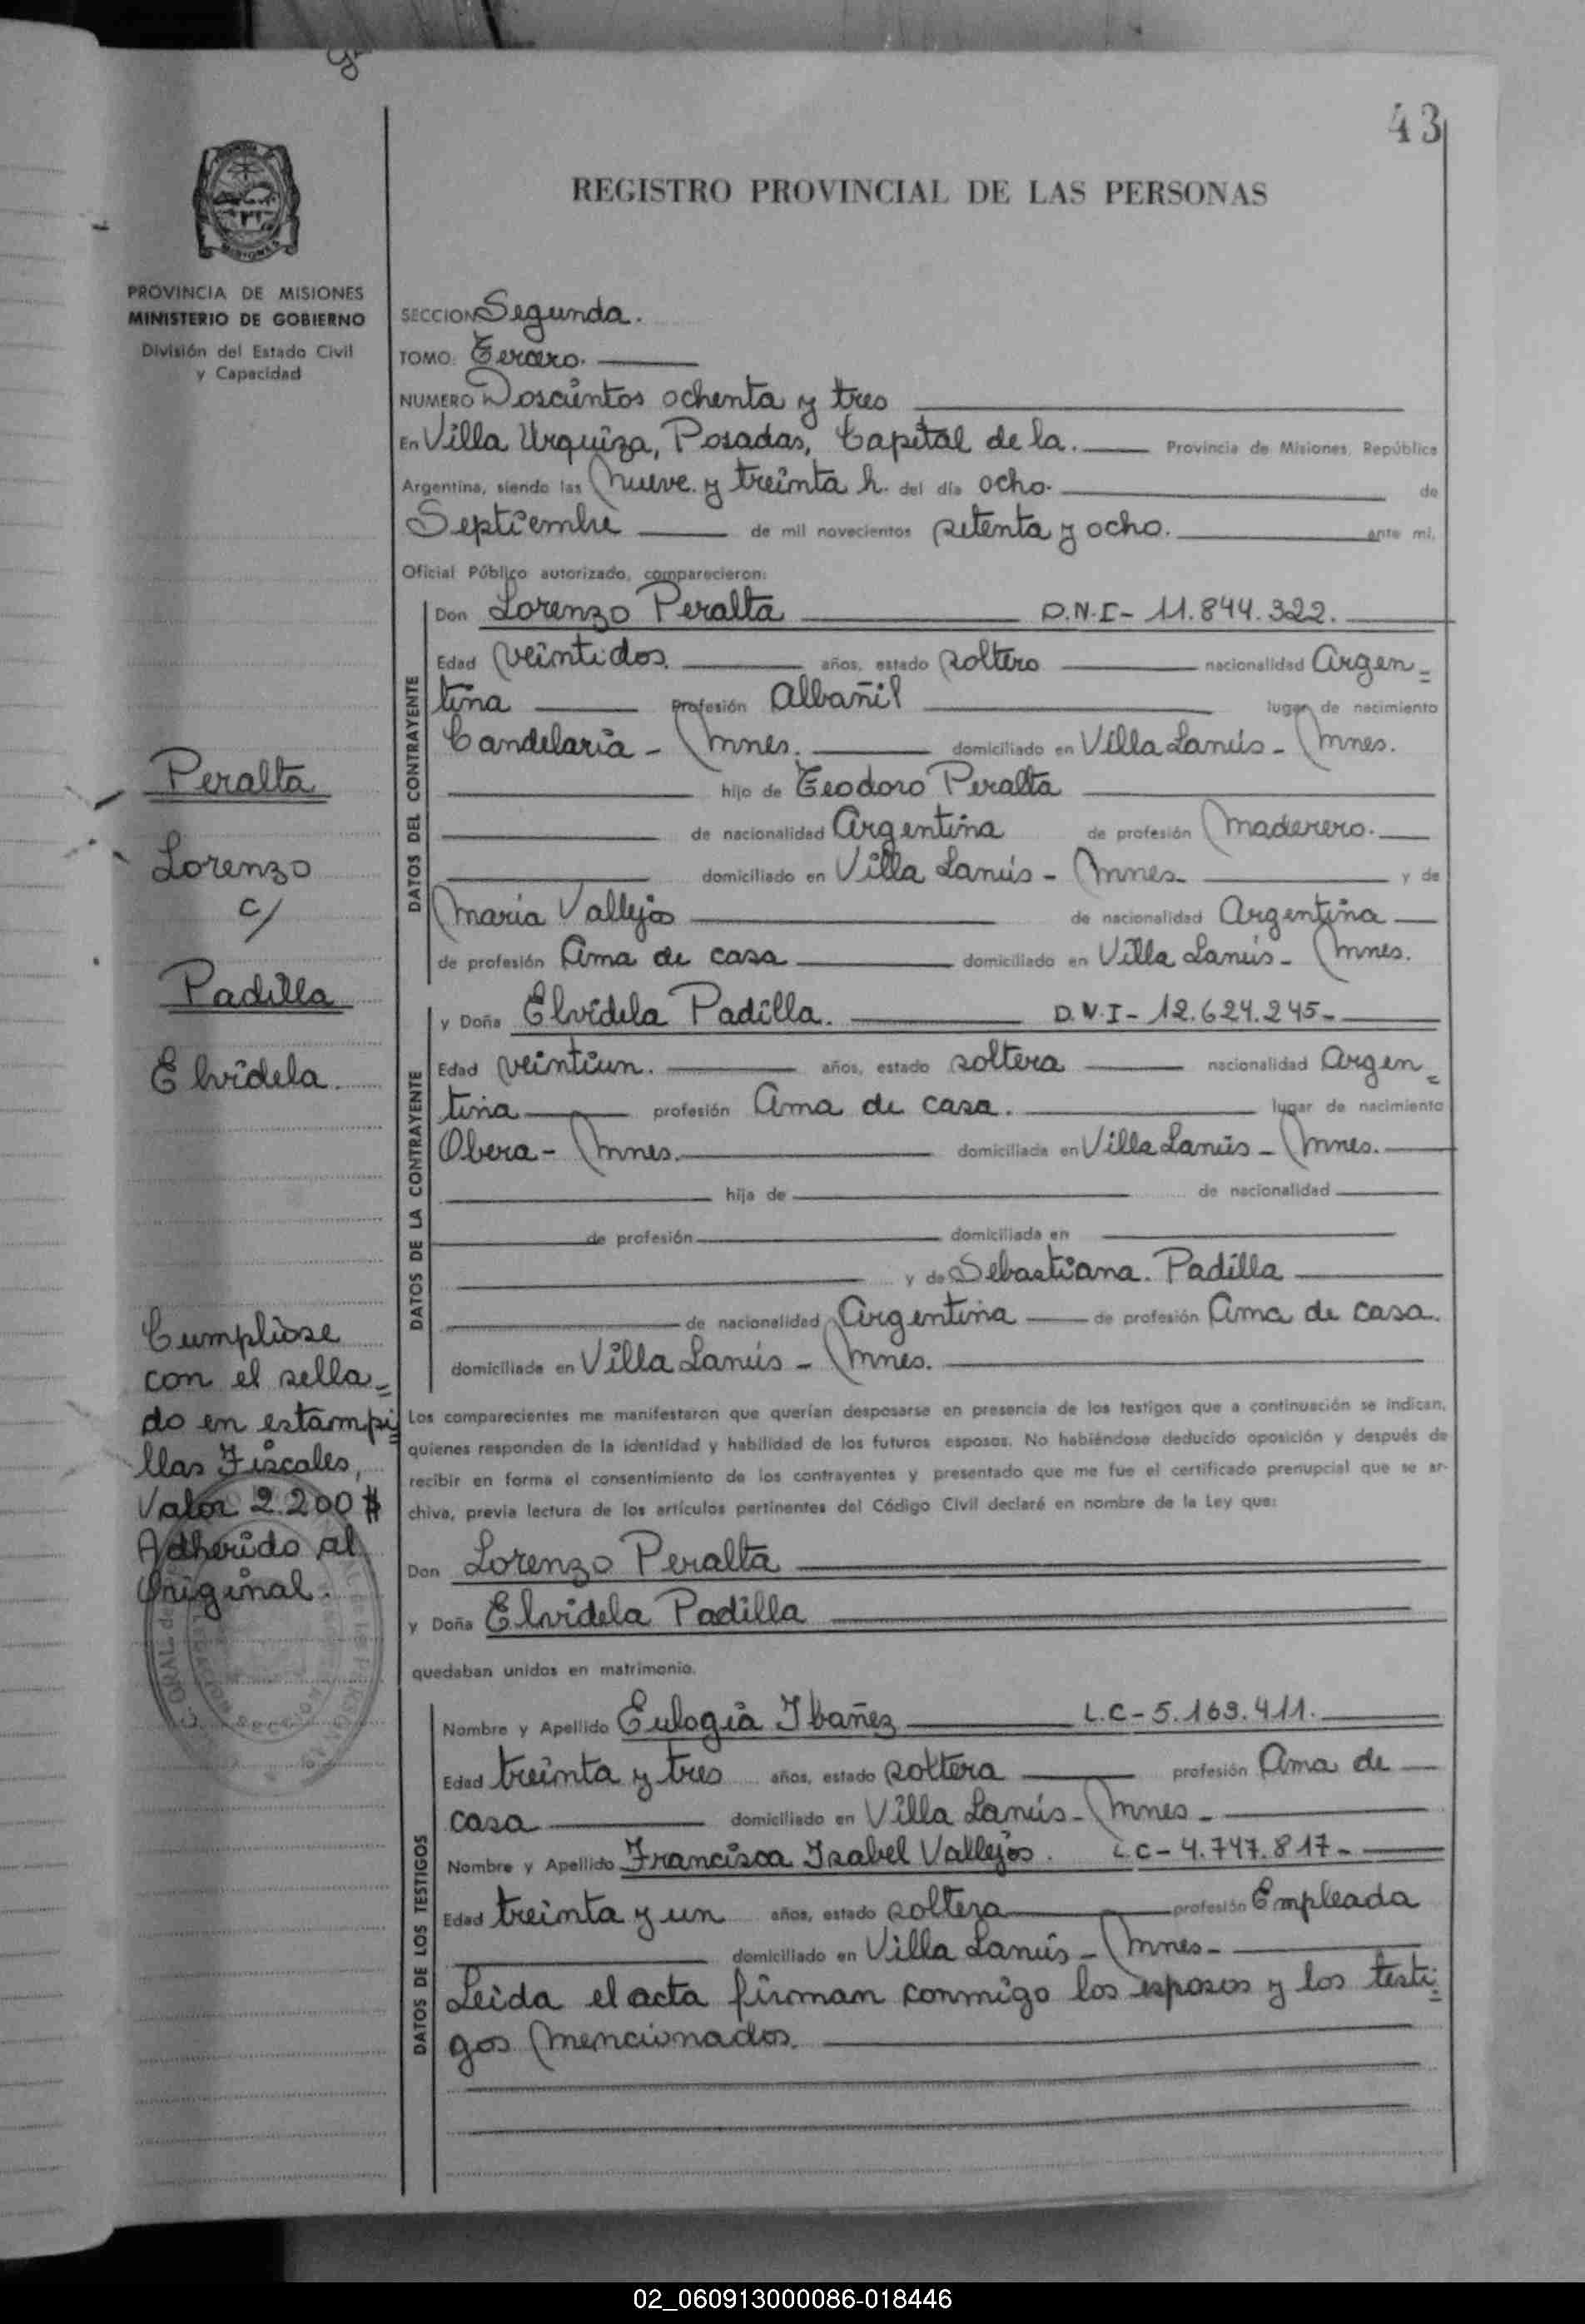 43
REGISTRO PROVINCIAL DE LAS PERSONAS
MISIONES
PROVINCIA DE MISIONES
MINISTERIO DE GOBIERNO
División del Estado Civil
y Capacidad
SECCION Segunda.
TOMO: Tercero.
NUMERO Doscientos ochenta y tres
En Villa Urquiza, Posadas, Capital de la. Provincia de Misiones, República
Argentina, siendo las nueve y treinta h. del día ocho. de
Septiembre de mil novecientos setenta y ocho. ante mi,
Oficial Público autorizado, comparecieron:
DATOS DEL CONTRAYENTE
Don Lorenzo Peralta D.N.I- 11.844.322.
Edad veintidos. años, estado soltero nacionalidad Argen=
tina Profesión Albañil lugar de nacimiento
Candelaria - Mnes. domiciliado en Villa Lanús - Mnes.
hijo de Teodoro Peralta
de nacionalidad Argentina de profesión Maderero.
domiciliado en Villa Lanús - Mnes y de
Maria Vallejos de nacionalidad Argentina
de profesión Ama de casa domiciliado en Villa Lanús - Mnes.
DATOS DE LA CONTRAYENTE
y Doña Elvidela Padilla. D.N.I- 12.624.245-
Edad veintiun. años, estado soltera nacionalidad Argen=
tina profesión Ama de casa. lugar de nacimiento
Obera - Mnes. domiciliada en Villa Lanús - Mnes.
hija de de nacionalidad
de profesión domiciliada en
y de Sebastiana. Padilla
de nacionalidad Argentina de profesión Ama de casa.
domiciliada en Villa Lanús - Mnes.
Los comparecientes me manifestaron que querían desposarse en presencia de los testigos que a continuación se indican,
quienes responden de la identidad y habilidad de los futuros esposos. No habiéndose deducido oposición y después de
recibir en forma el consentimiento de los contrayentes y presentado que me fue el certificado prenupcial que se ar-
chiva, previa lectura de los artículos pertinentes del Código Civil declaré en nombre de la Ley que:
Don Lorenzo Peralta
y Doña Elvidela Padilla
quedaban unidos en matrimonio.
DATOS DE LOS TESTIGOS
Nombre y Apellido Eulogia Ibañez L.C- 5.169.411.
Edad treinta y tres años, estado soltera profesión Ama de
casa domiciliado en Villa Lanús - Mnes -
Nombre y Apellido Francisca Isabel Vallejos. L.C- 4.747.817-
Edad treinta y un años, estado soltera profesión Empleada
domiciliado en Villa Lanús - Mnes-
Leida el acta firman conmigo los esposos y los testi=
gos mencionados.
Peralta
Lorenzo
c/
Padilla
Elvidela.
Cumpliose
con el sella=
do en estampi=
llas Fiscales,
Valor 2.200 $
Adherido al
Original.
02_060913000086-018446